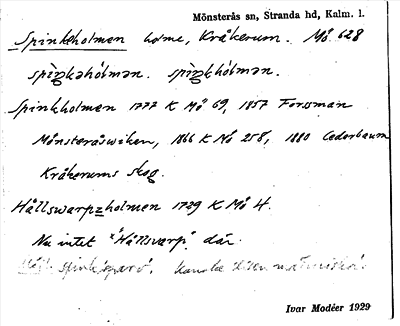 Mönsterås sn, Stranda hd, Kalm. l.
Spinkeholmen holme, Kråkerum. Mö 628
spìŋkəhólmən. spìŋkhólmən.
Spinkholmen 1777 K Mö 69, 1857 Forssman
Mönsteråsviken, 1866 K Mö 258, 1880 Cederbaum
Kråkerums skog.
Hållswarpzholmen 1729 K Mö 4.
Nu intet "Hållsvarp" där.
spink 'sparv', kanske liten människa'.
Ivar Modéer 1929